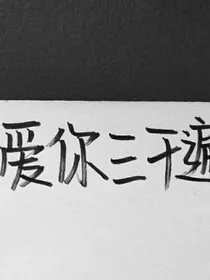 爱你三千遍